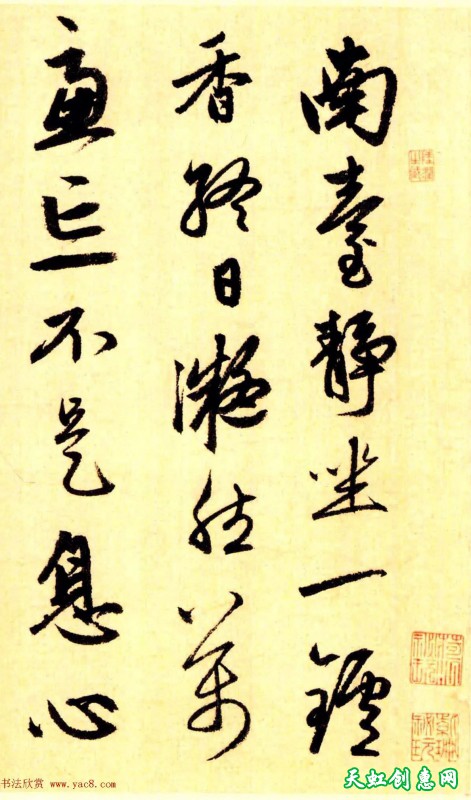 南臺靜坐一鑪
香終日凝然萬
慮亡不是息心
书法欣赏 www.yac8.com
天虹创惠网